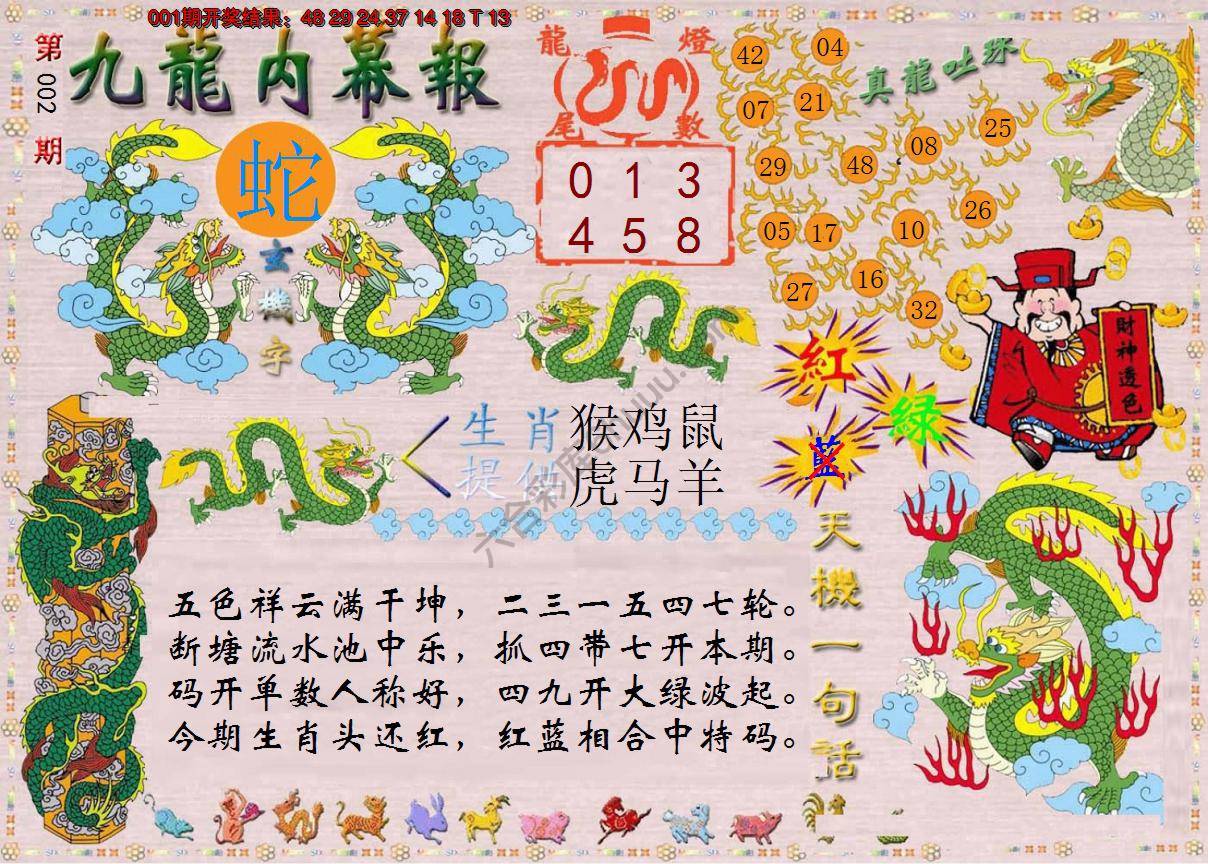 001期开奖结果：48 29 24 37 14 18 T 13
第
002
期
九龍内幕報
蛇
玄
機
字
龍 燈
尾 數
0 1 3
4 5 8
真龍吐珠
42 04
07 21
29 48 08 25
05 17 10 26
27 16 32
財神透色
紅
綠
藍
生肖
提供
猴鸡鼠
虎马羊
天機一句話
五色祥云满干坤，二三一五四七轮。
断塘流水池中乐，抓四带七开本期。
码开单数人称好，四九开大绿波起。
今期生肖头还红，红蓝相合中特码。